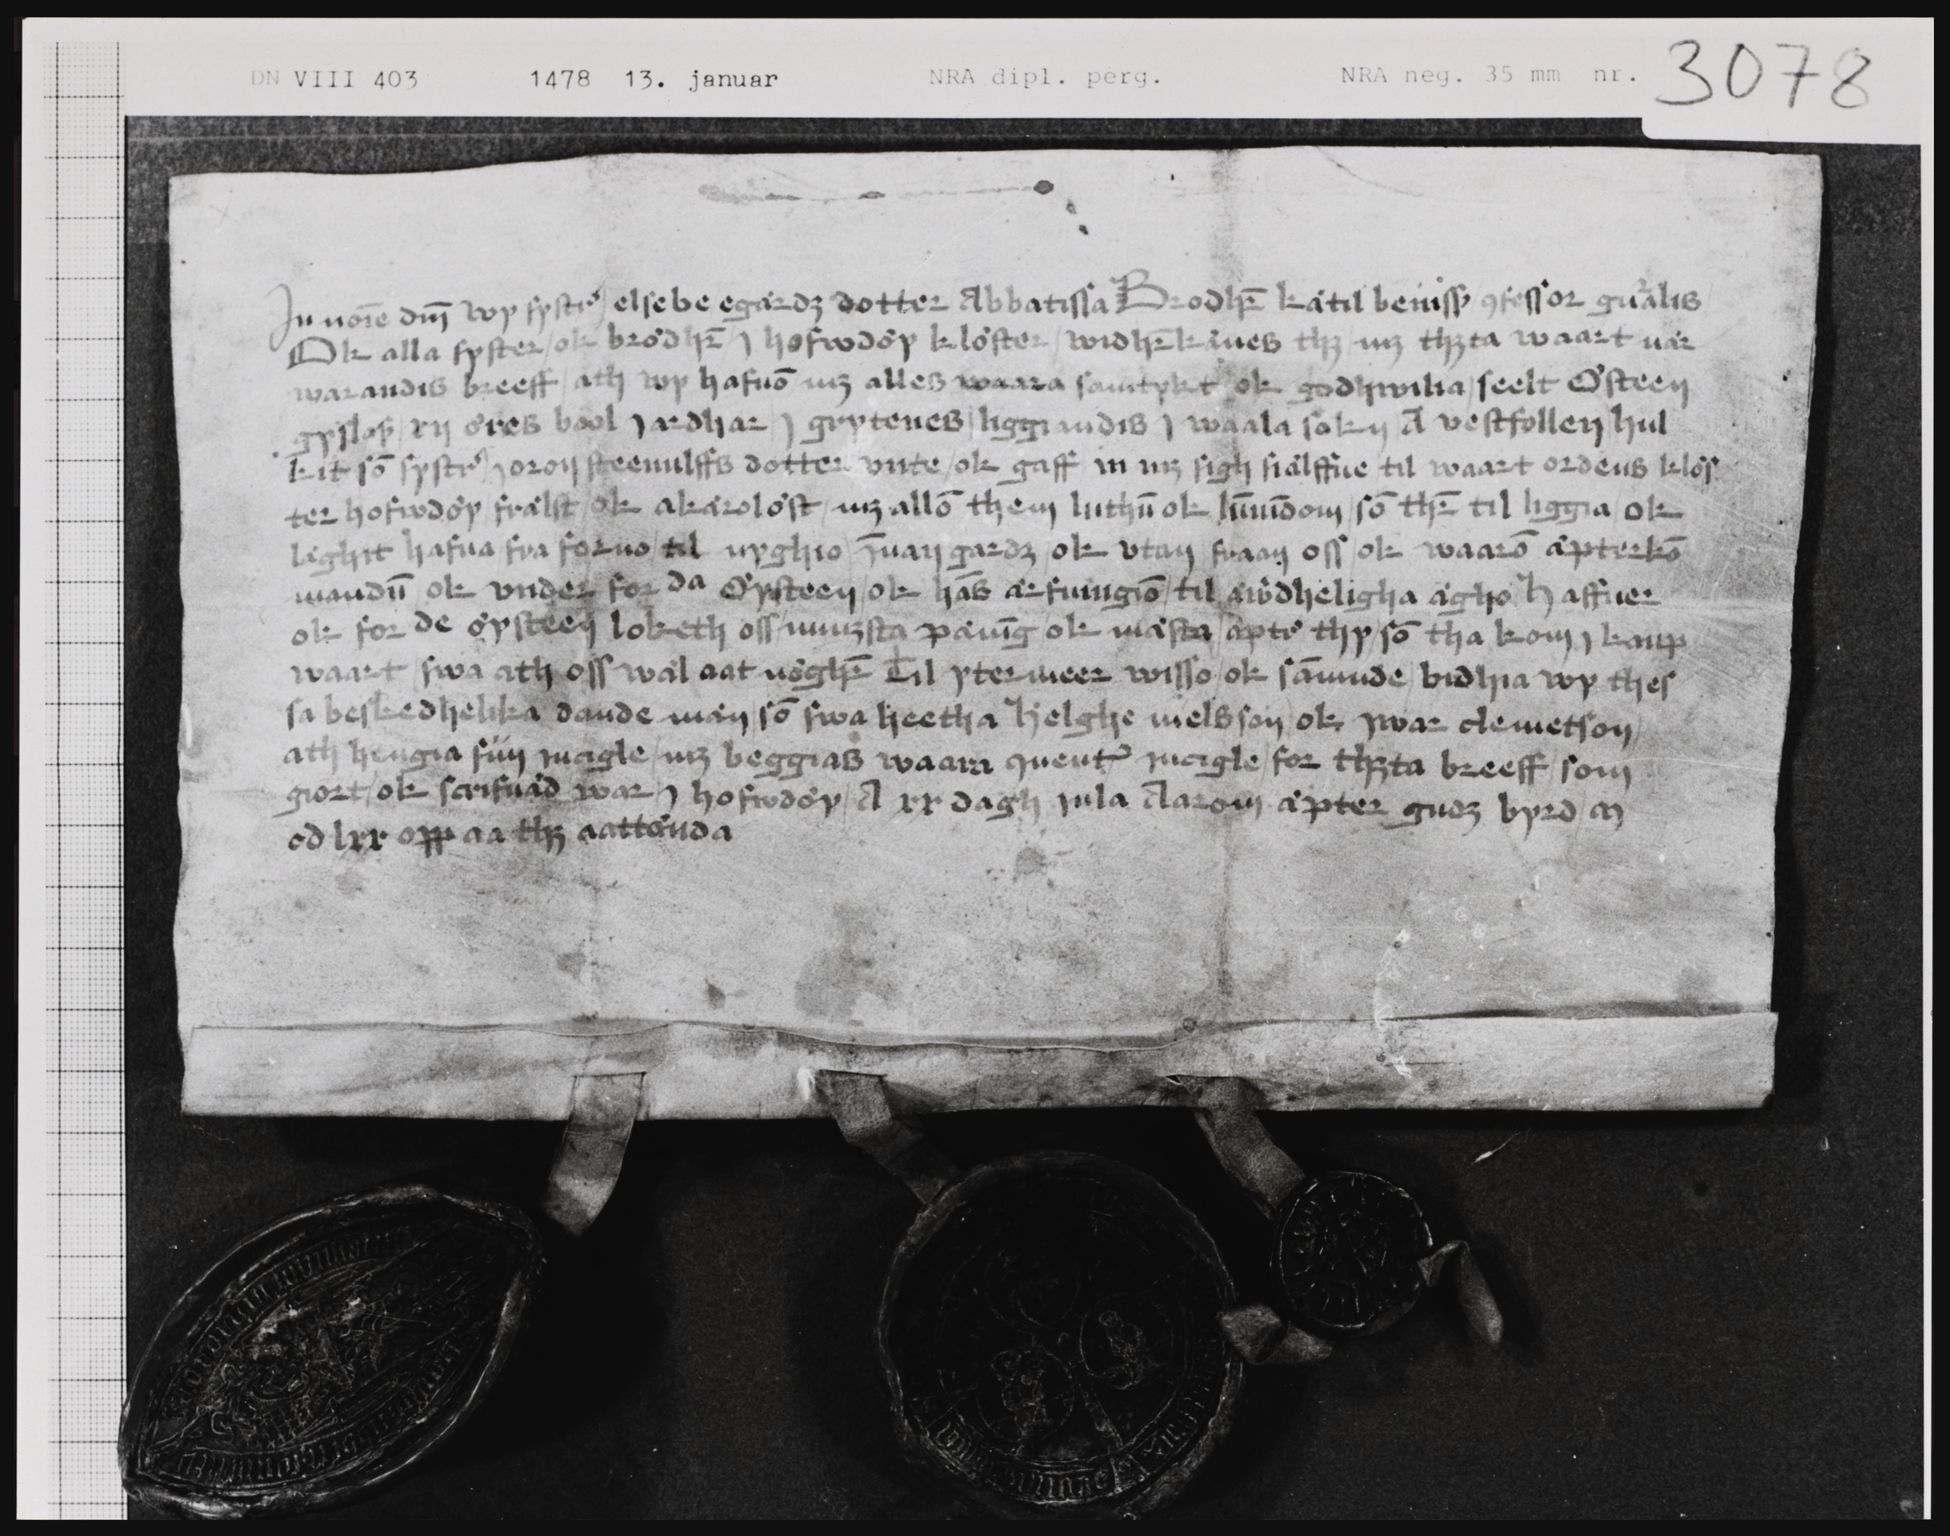 DN VIII 403 1478 13. januar NRA dipl. perg. NRA neg. 35 mm nr. 3078
In noīe dm̄ wy systr̄ elsebe egärdꝫ dotter Abbatissa Brodhr̄ kätil benissꝫ ꝯfessor gn̄alis
Ok alla syster ok brödhr̄ j hofwdöy klöster widhr̄känes thꝫ mꝫ thꝫta waart när
warandis breeff ath wy hafuō mꝫ alles waara samtykt ok godhwilia seelt Östeen
xij öres bool jardhar j gryteнes liggiandis j waala sokn A vestfollen hul
kit sō systr̄ joron steenulffs dotter vnte ok gaff in mꝫ sigh siälffue til waart ordens klös
ter hofwdöy frälst ok akärolöst mꝫ allō them luthū ok lūnīdom sō thr̄ til liggia ok
lighit hafua fra forno til nyghio jnnan gardꝫ ok vtan fraan oss ok waarō äpterkō
mandū ok vnder for da Öysteen ok hās ärfuingiō til äwdheligha ägho Haffuer
ok for de öysteen loketh oss minꝫsta pänīg ok mästa äptr̄ thy sō tha kom j kaup
waart swa ath oss wäl aat nöghr̄ Til ytermeer wisso ok sāmnde bidhia wy thes
sa beskedhelika dande män sō swa heetha Helghe nielsson ok jwar clemetson
ath hengia siin jncigle mꝫ beggias waara ꝯuentꝫ jncigle for thꝫta breeff som
giort ok scrifuäd war j hofwdöy A xx dagh jula Aarom äpter gudꝫ byrd m
cd lxx opp aa thꝫ aattonda